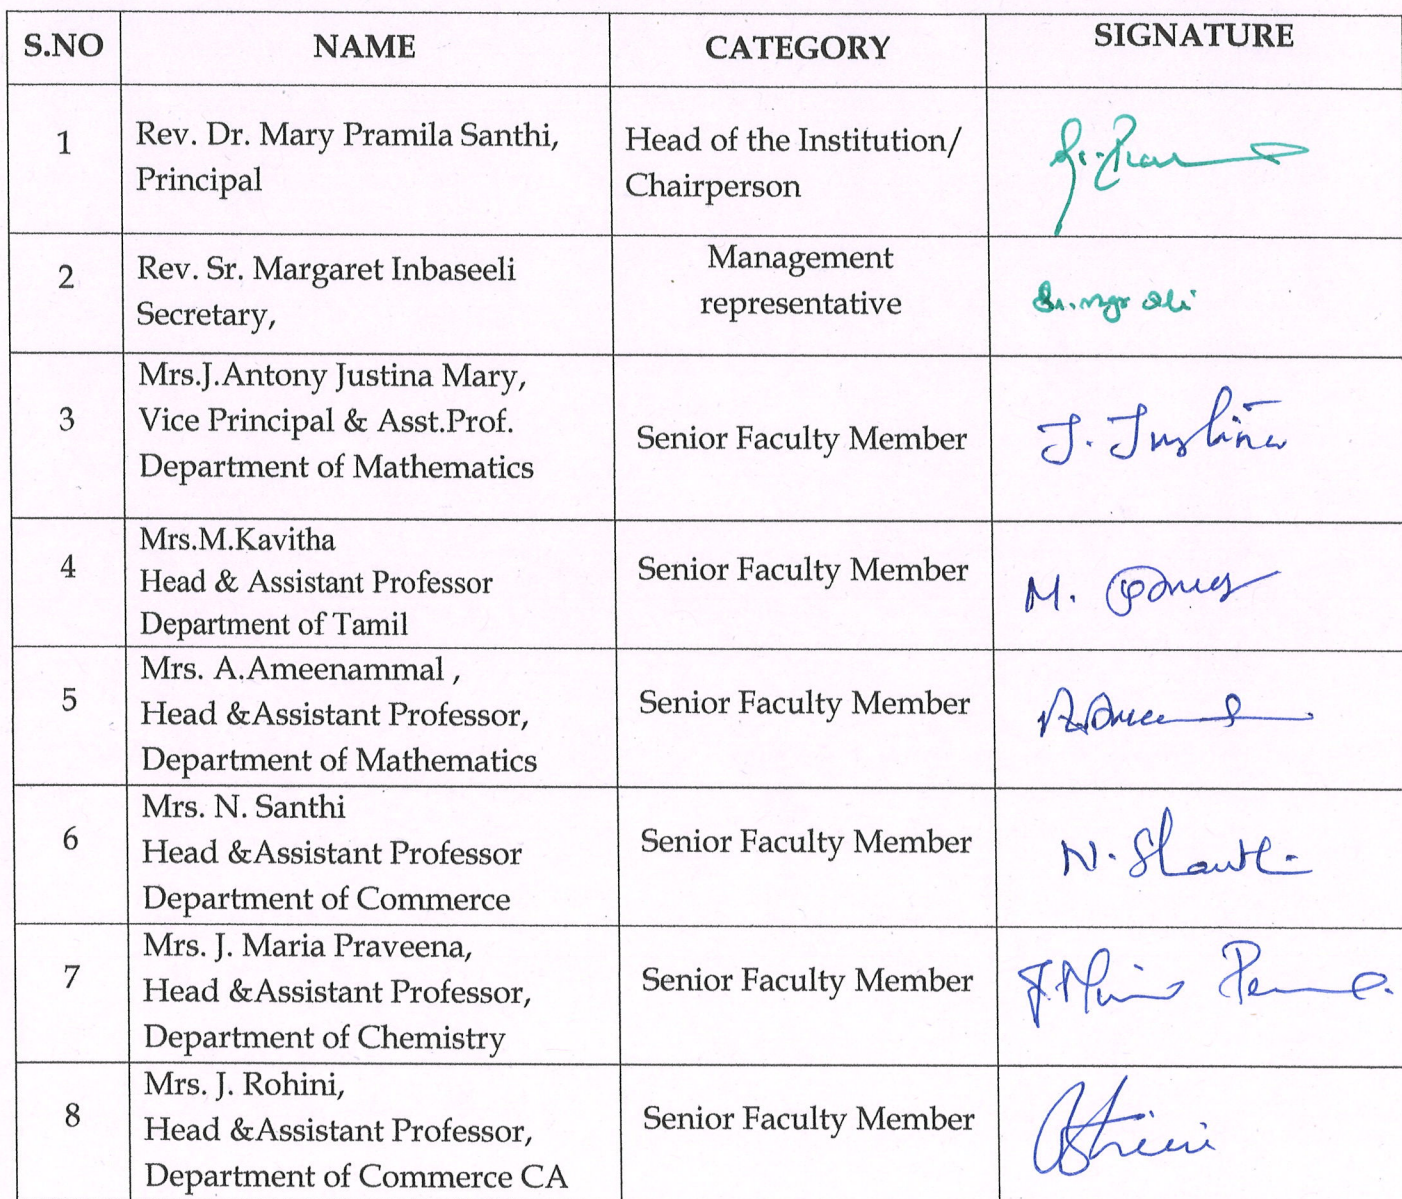 S.NO NAME CATEGORY SIGNATURE
1
Rev. Dr. Mary Pramila Santhi,
Principal
Head of the Institution/
Chairperson
2
Rev. Sr. Margaret Inbaseeli
Secretary,
Management
representative
3
Mrs.J.Antony Justina Mary,
Vice Principal & Asst.Prof.
Department of Mathematics
Senior Faculty Member
J. Justina
4
Mrs.M.Kavitha
Head & Assistant Professor
Department of Tamil
Senior Faculty Member
M.
5
Mrs. A.Ameenammal ,
Head &Assistant Professor,
Department of Mathematics
Senior Faculty Member
6
Mrs. N. Santhi
Head &Assistant Professor
Department of Commerce
Senior Faculty Member
N. Shanthi
7
Mrs. J. Maria Praveena,
Head &Assistant Professor,
Department of Chemistry
Senior Faculty Member
8
Mrs. J. Rohini,
Head &Assistant Professor,
Department of Commerce CA
Senior Faculty Member